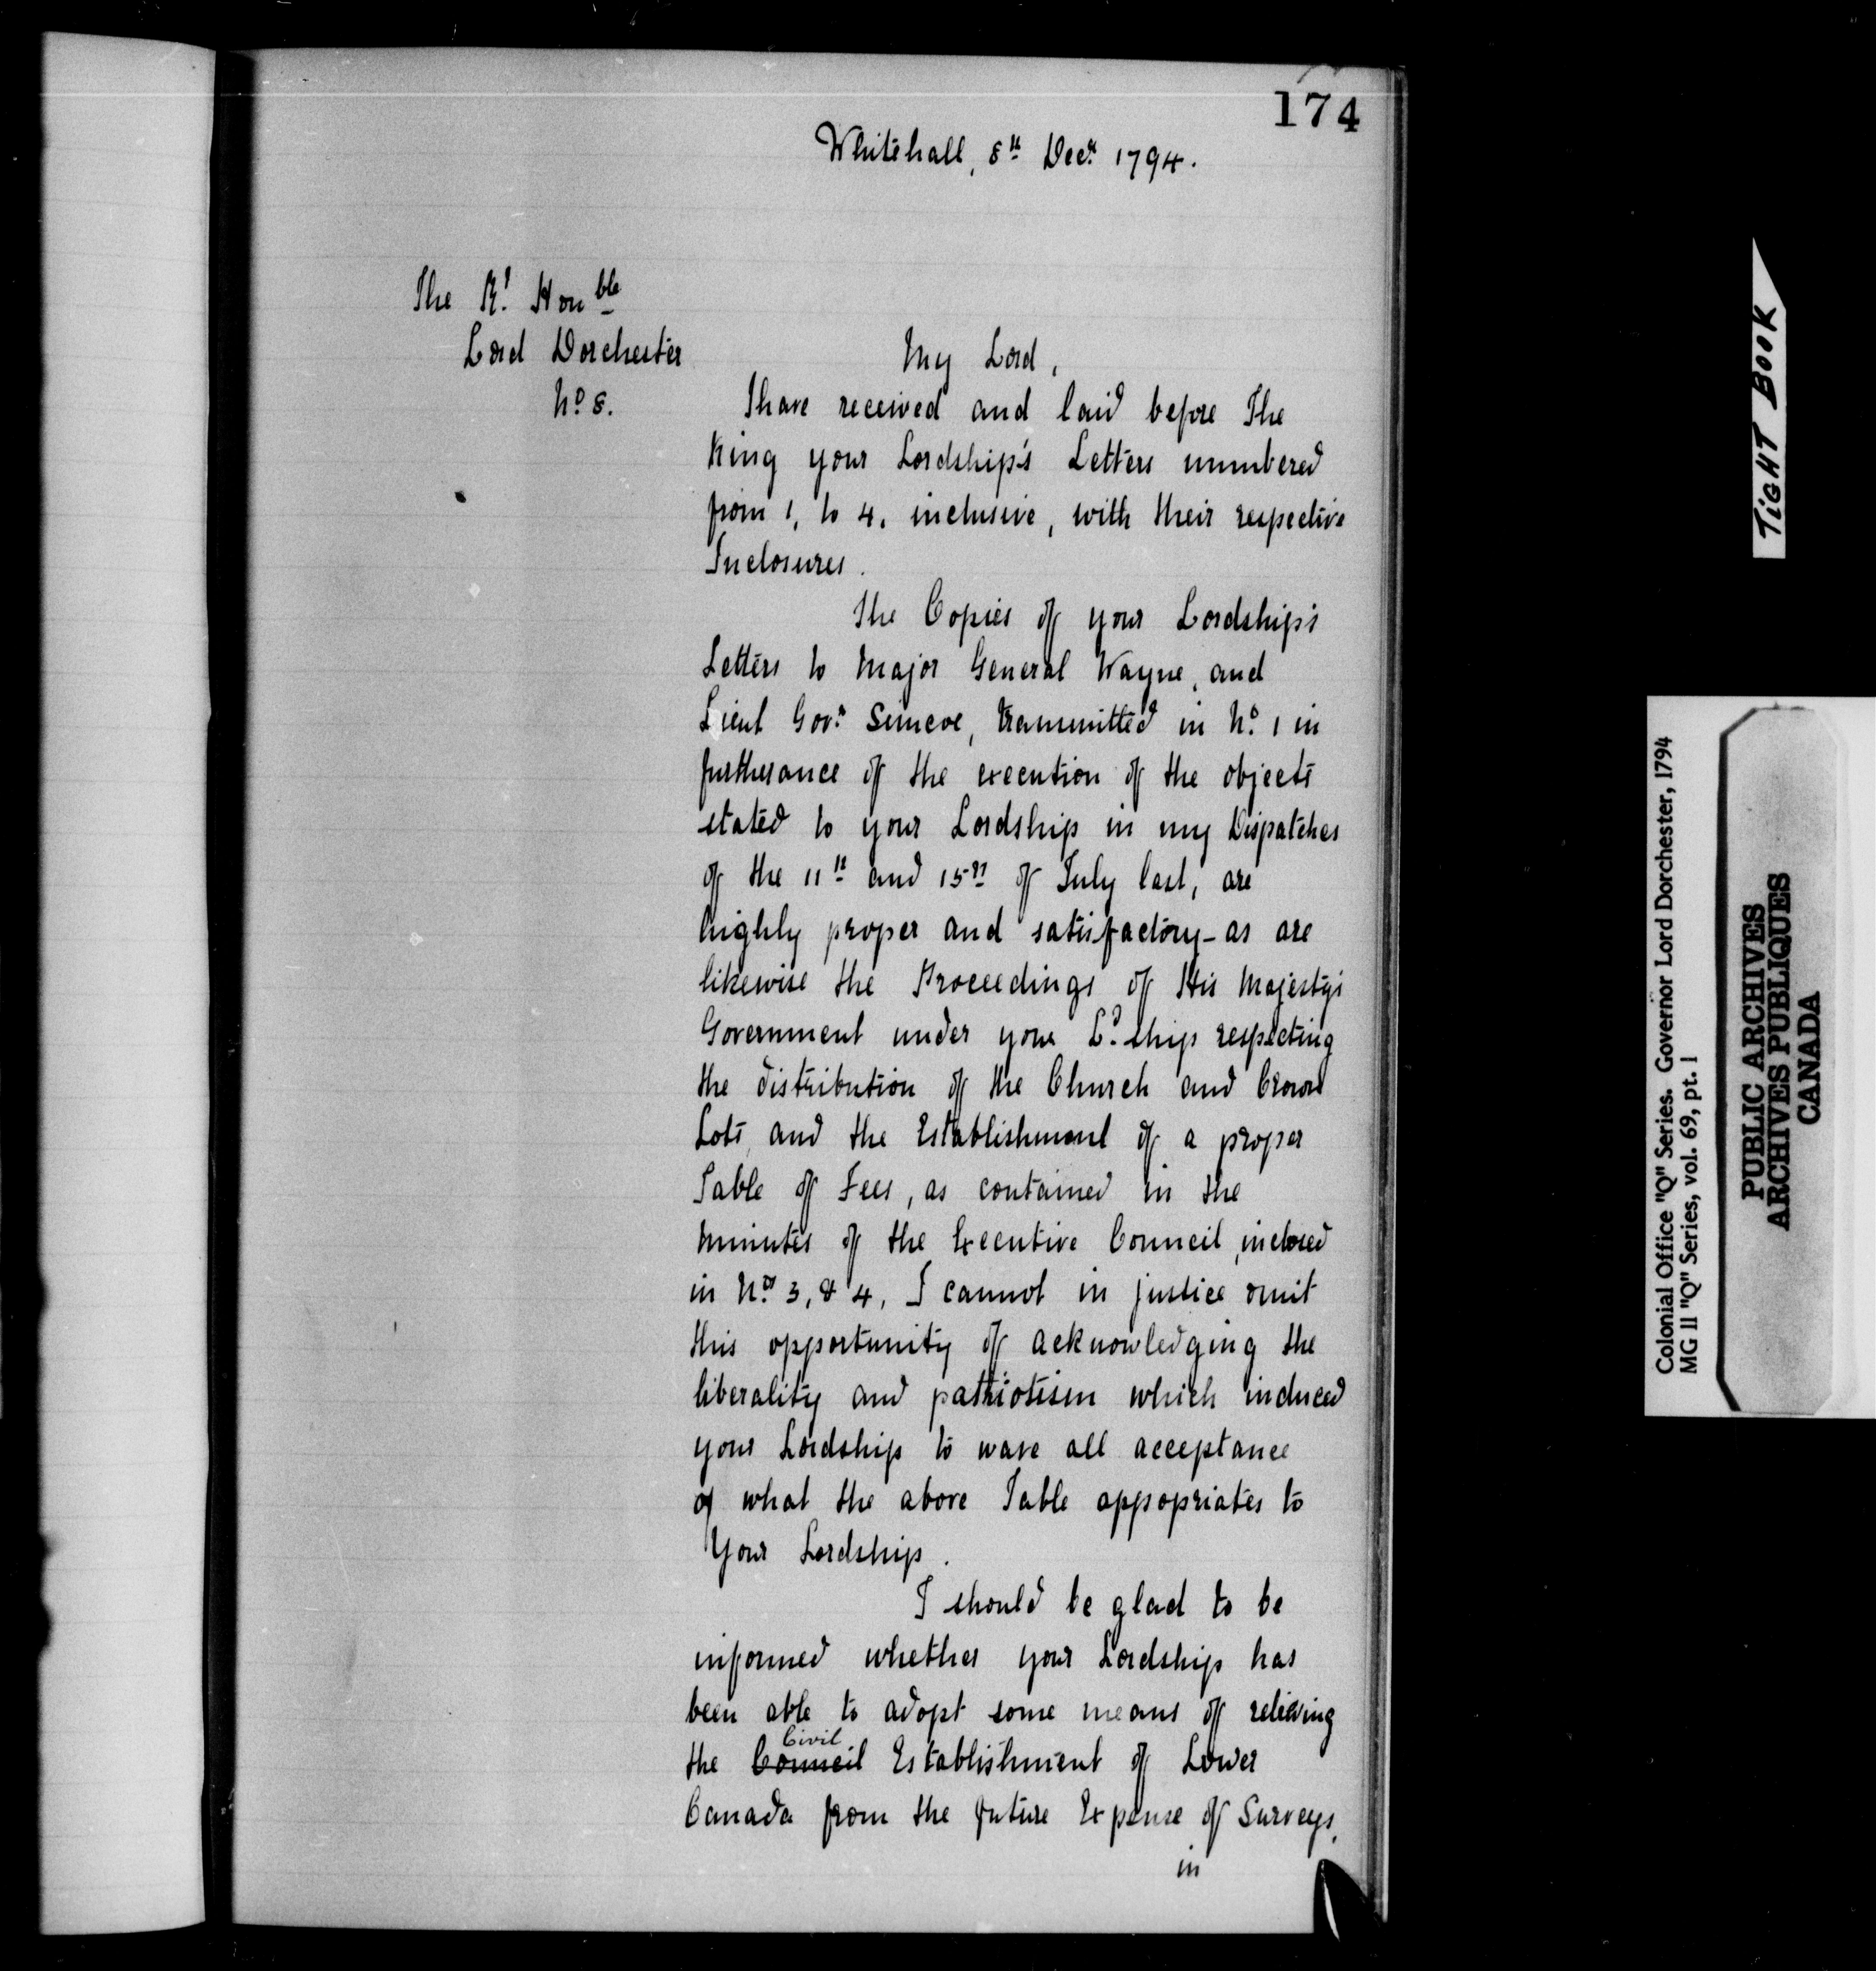 174
Whitehall, 8th Decr. 1794.
The Rt. Honble
Lord Dorchester
No. 8.
My Lord,
I have received and laid before The
King your Lordship's Letters numbered
from 1, to 4, inclusive, with their respective
Inclosures.
The Copies of your Lordship's
Letters to Major General Wayne, and
Lieut Govr. Simcoe, transmitted in No. 1 in
furtherance of the execution of the objects
stated to your Lordship in my Dispatches
of the 11th and 15th of July last, are
highly proper and satisfactory - as are
likewise the Proceedings of His Majesty's
Government under your Ld.ship respecting
the distribution of the Church and Crown
Lots, and the Establishment of a proper
Table of Fees, as contained in the
Minutes of the Executive Council, inclosed
in Nos. 3, & 4, I cannot in justice omit
this opportunity of acknowledging the
liberality and patriotism which induced
your Lordship to wave all acceptance
of what the above Table appopriates to
Your Lordship.
I should be glad to be
informed whether your Lordship has
been able to adopt some means of relieving
the Council Civil Establishment of Lower
Canada from the future Expense of Surveys,
in
TIGHT BOOK
Colonial Office "Q" Series. Governor Lord Dorchester, 1794
MG 11 "Q" Series, vol. 69, pt. 1
PUBLIC ARCHIVES
ARCHIVES PUBLIQUES
CANADA